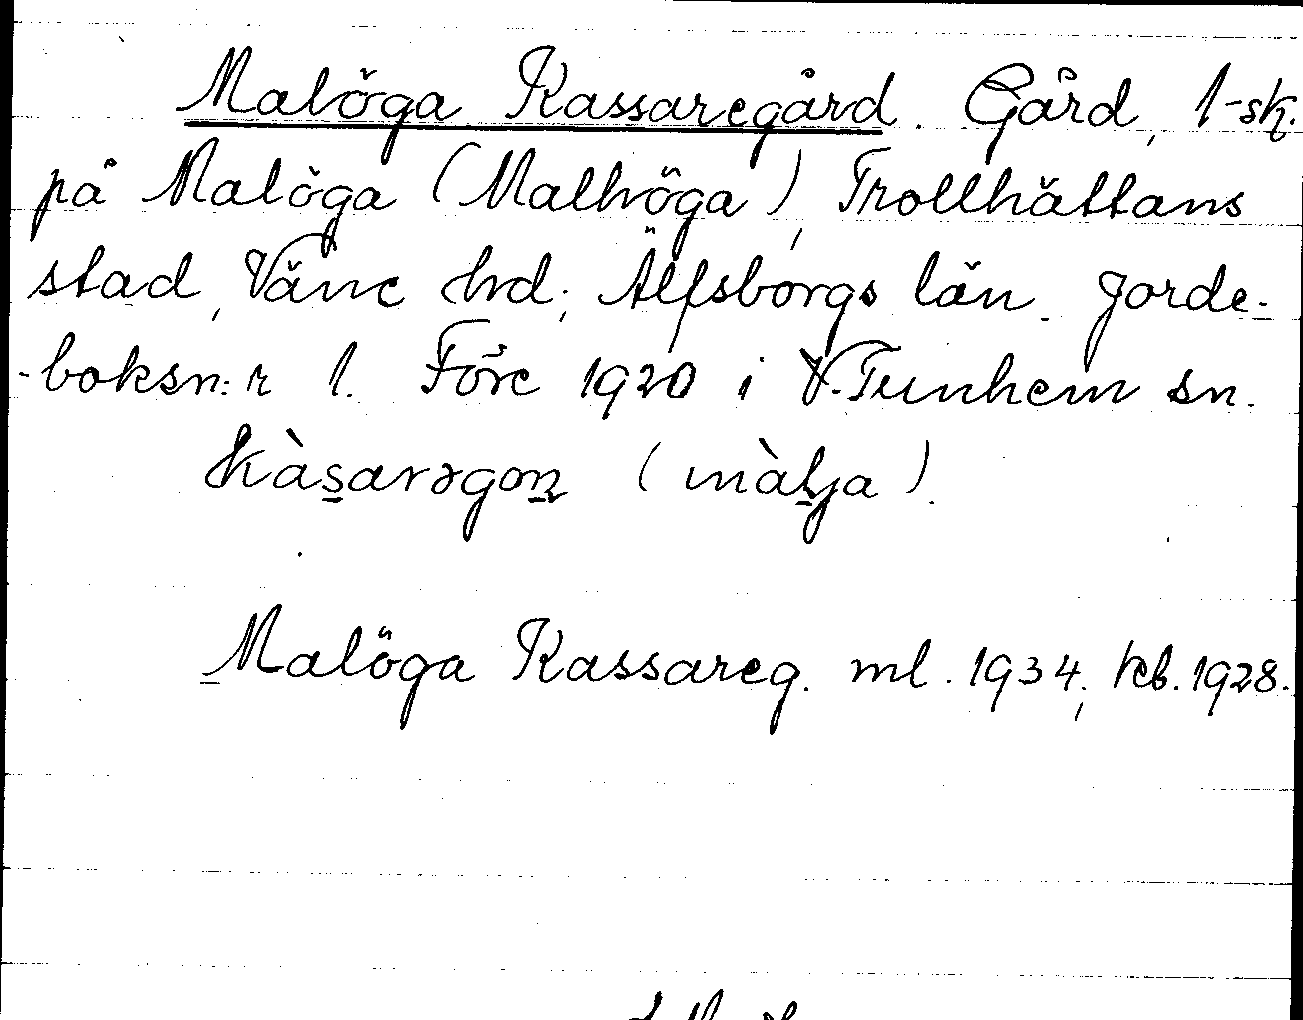 Malöga Kassaregård. Gård, 1-sk.
på Malöga (Malhöga), Trollhättans
stad, Väne hrd; Älfsborgs län. Jorde-
-boksn:r 1. Före 1920 i V. Tunhem sn.
kàs̱arəgoṉ (màḻja).
Malöga Kassareg. ml. 1934; keb. 1928.